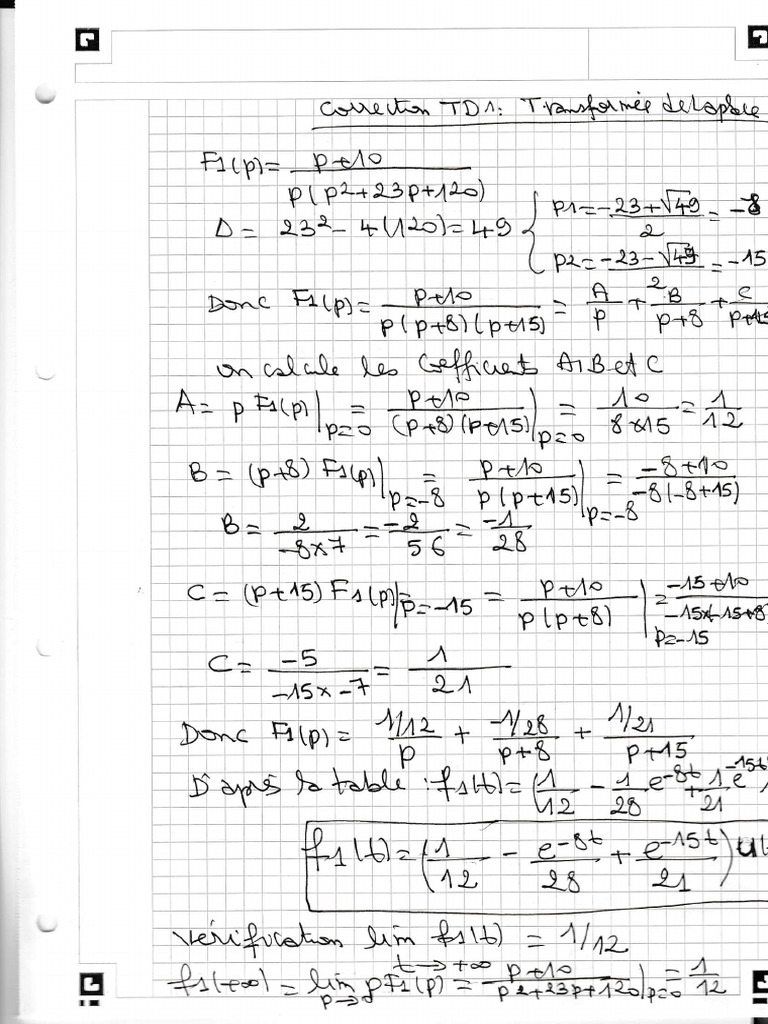 Correction TD1: Transformée de Laplace
F1(p) = p+10 / p(p²+23p+120)
Δ = 23² - 4(120) = 49 { p1 = -23+√49 / 2 = -8
p2 = -23-√49 / 2 = -15
Donc F1(p) = p+10 / p(p+8)(p+15) = A/p + B/p+8 + C/p+15
on calcule les Coefficients A, B et C
A = p F1(p)|p=0 = p+10 / (p+8)(p+15)|p=0 = 10 / 8×15 = 1/12
B = (p+8) F1(p)|p=-8 = p+10 / p(p+15)|p=-8 = -8+10 / -8(-8+15)
B = 2 / -8×7 = -2/56 = -1/28
C = (p+15) F1(p)|p=-15 = p+10 / p(p+8)|p=-15 = -15+10 / -15×(-15+8
C = -5 / -15×-7 = 1 / 21
Donc F1(p) = 1/12 / p + -1/28 / p+8 + 1/21 / p+15
D'après la table : f1(t) = (1/12 - 1/28 e-8t + 1/21 e-15t
f1(t) = (1/12 - e-8t/28 + e-15t/21) u(
Vérification lim t→+∞ f1(t) = 1/12
f1(+∞) = lim p→0 pF1(p) = p+10 / p²+23p+120|p=0 = 1/12